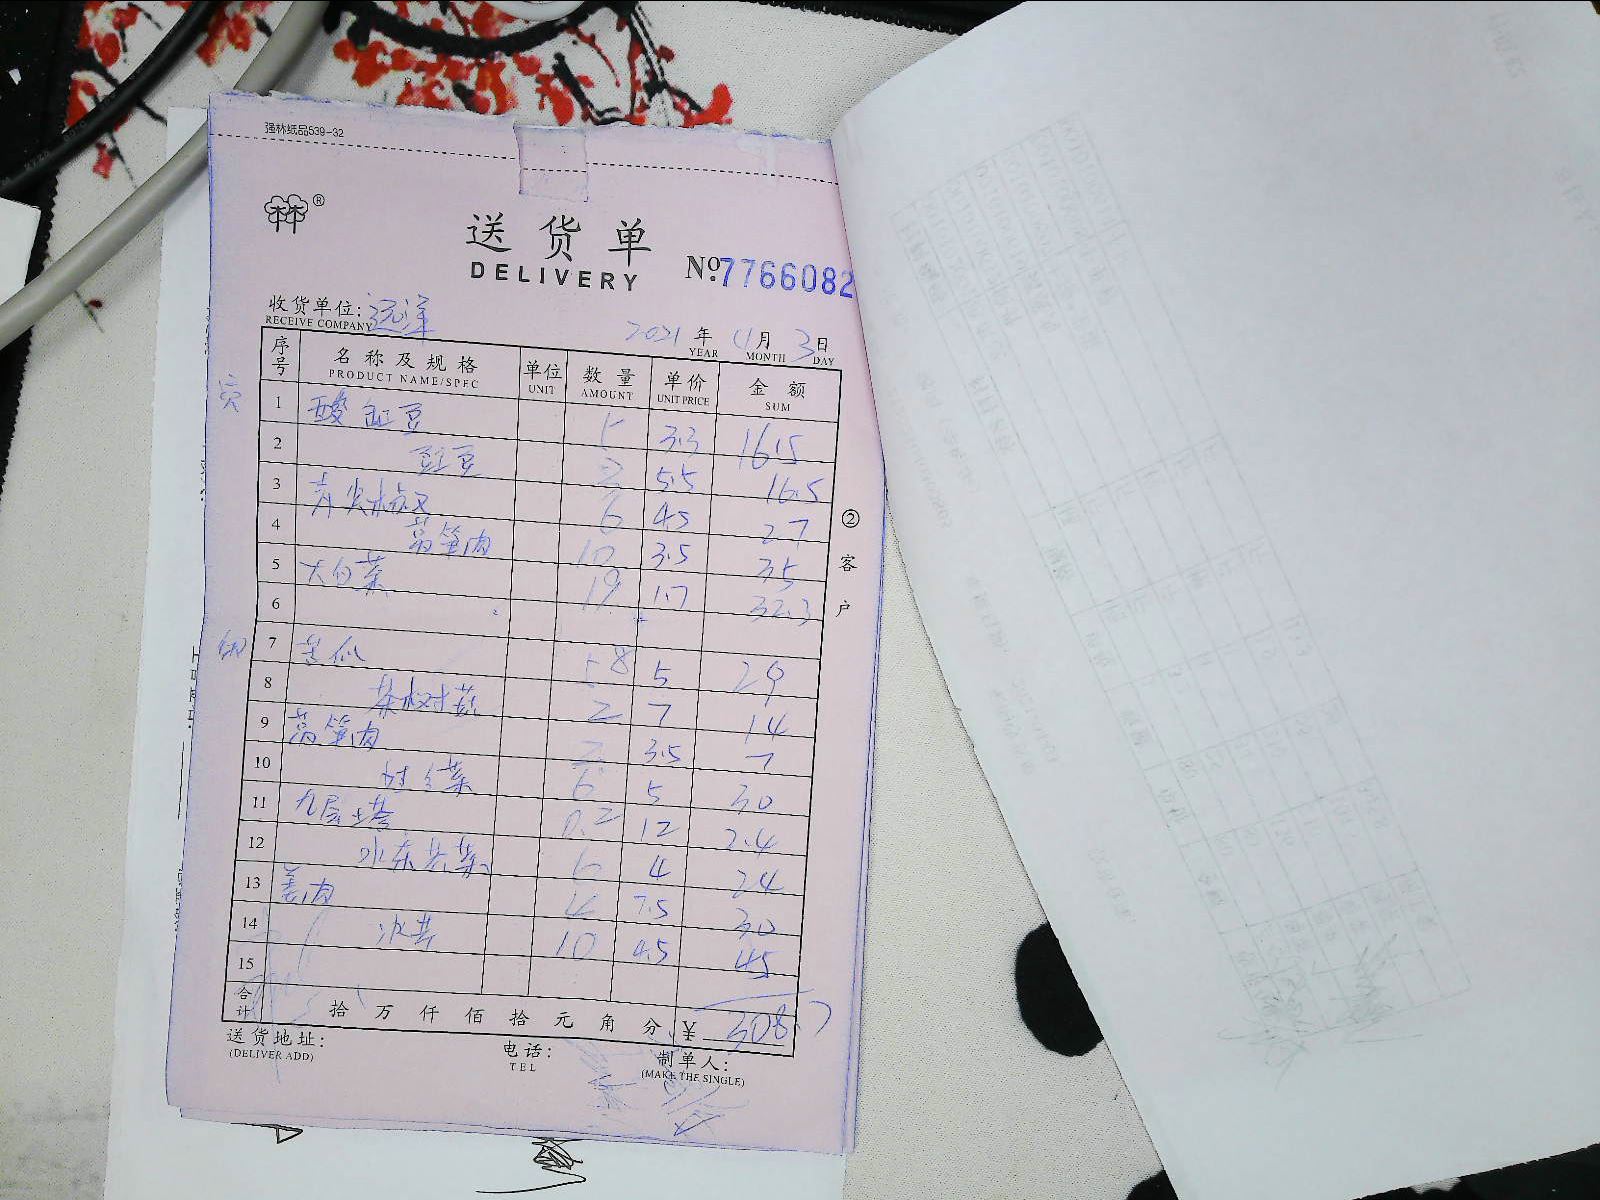 强林纸品539-32
林林®
送货单
DELIVERY
№.7766082
收货单位:远洋
RECEIVE COMPANY
2021年4月3日
YEAR MONTH DAY
序号 名称及规格 单位 数量 单价 金额
PRODUCT NAME/SPEC UNIT AMOUNT UNIT PRICE SUM
1 酸缸豆 5 3.3 16.5
2 豇豆 3 5.5 16.5
3 青尖椒 6 4.5 27
4 莴笋肉 10 3.5 35
5 大白菜 19 1.7 32.3
6
7 苦瓜 5.8 5 29
8 茶树菇 2 7 14
9 莴笋肉 2 3.5 7
10 菜 6 5 30
11 九层塔 0.2 12 2.4
12 水东芥菜 6 4 24
13 姜肉 4 7.5 30
14 10 4.5 45
15
合计 拾万仟佰拾元角分 ¥308.7
送货地址: 电话: 制单人:
(DELIVER ADD) TEL (MAKE THE SINGLE)
②客户